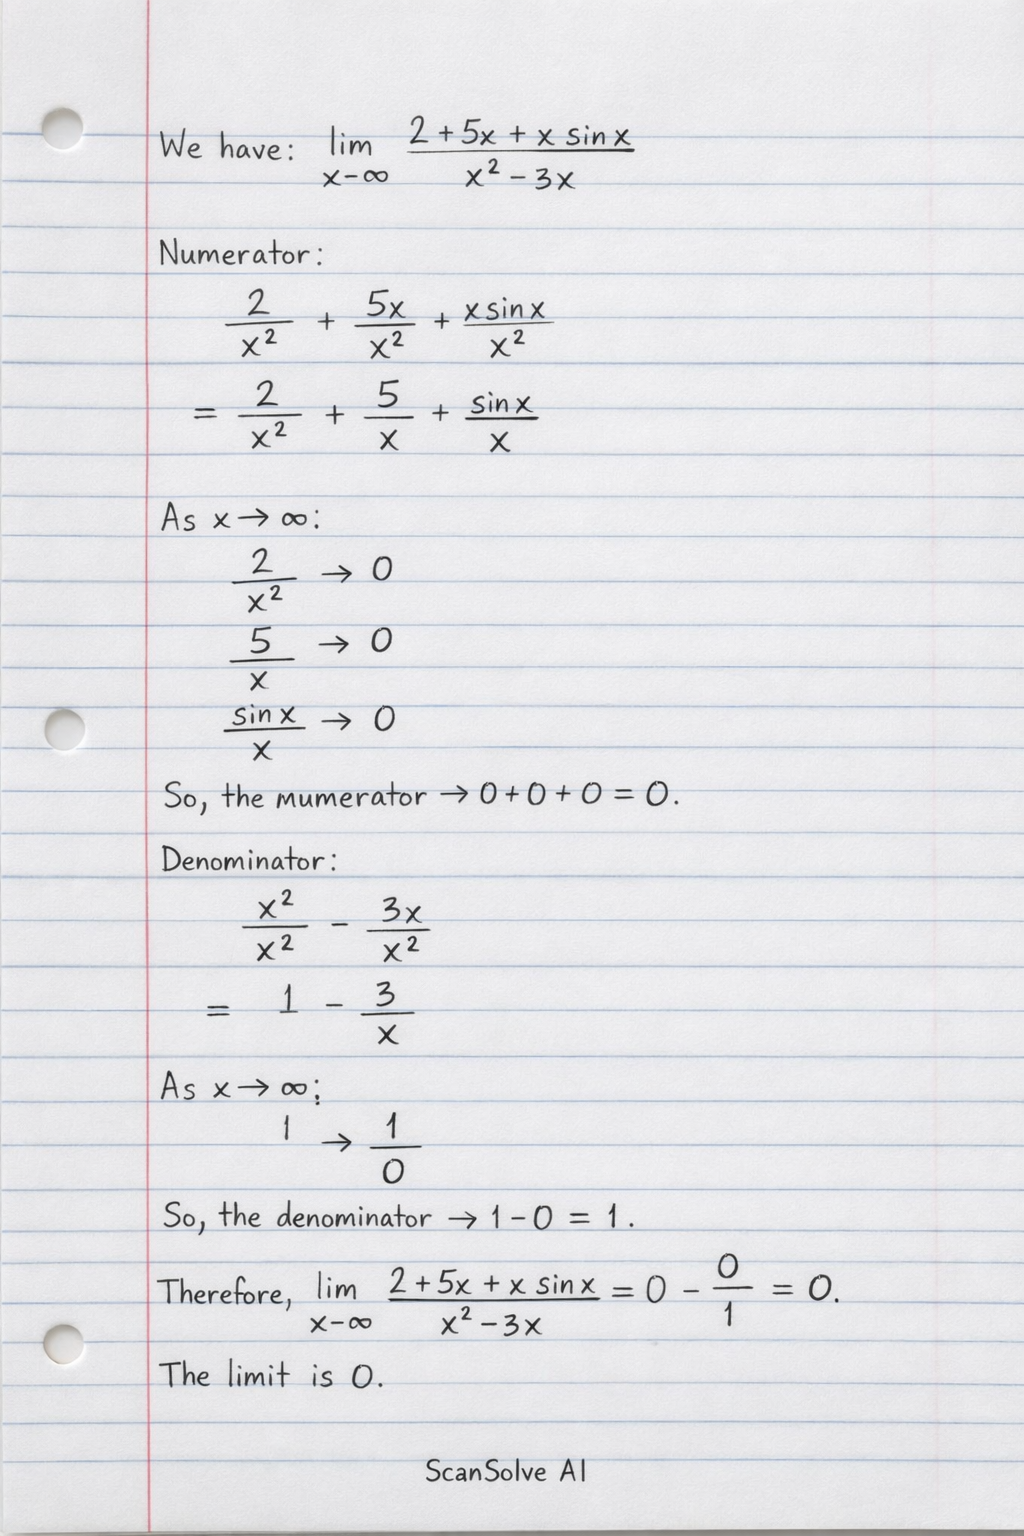 We have: lim x-∞ (2 + 5x + x sin x)/(x² - 3x)
Numerator:
2/x² + 5x/x² + x sin x/x²
= 2/x² + 5/x + sin x/x
As x → ∞:
2/x² → 0
5/x → 0
sin x/x → 0
So, the mumerator → 0 + 0 + 0 = 0.
Denominator:
x²/x² - 3x/x²
= 1 - 3/x
As x → ∞:
1 → 1/0
So, the denominator → 1 - 0 = 1.
Therefore, lim x-∞ (2 + 5x + x sin x)/(x² - 3x) = 0 - 0/1 = 0.
The limit is 0.
ScanSolve AI